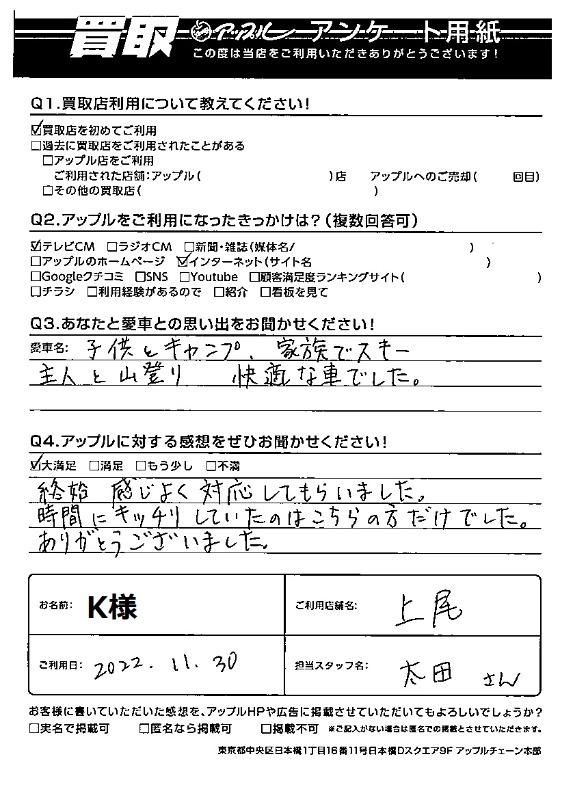 買取 アップル アンケート用紙
この度は当店をご利用いただきありがとうございます!
Q1.買取店利用について教えてください!
☑買取店を初めてご利用
□過去に買取店をご利用されたことがある
□アップル店をご利用
ご利用された店舗:アップル( )店 アップルへのご売却( 回目)
□その他の買取店( )
Q2.アップルをご利用になったきっかけは?(複数回答可)
☑テレビCM □ラジオCM □新聞・雑誌(媒体名/ )
□アップルのホームページ ☑インターネット(サイト名 )
□Googleクチコミ □SNS □Youtube □顧客満足度ランキングサイト( )
□チラシ □利用経験があるので □紹介 □看板を見て
Q3.あなたと愛車との思い出をお聞かせください!
愛車名: 子供とキャンプ、家族でスキー
主人と山登り 快適な車でした。
Q4.アップルに対する感想をぜひお聞かせください!
☑大満足 □満足 □もう少し □不満
終始 感じよく対応してもらいました。
時間にキッチリしていたのはこちらの方だけでした。
ありがとうございました。
お名前: K様 ご利用店舗名: 上尾
ご利用日: 2022.11.30 担当スタッフ名: 太田 さん
お客様に書いていただいた感想を、アップルHPや広告に掲載させていただいてもよろしいでしょうか?
□実名で掲載可 □匿名なら掲載可 □掲載不可 ※ご記入がない場合は匿名での掲載とさせていただきます。
東京都中央区日本橋1丁目16番11号日本橋Dスクエア9F アップルチェーン本部